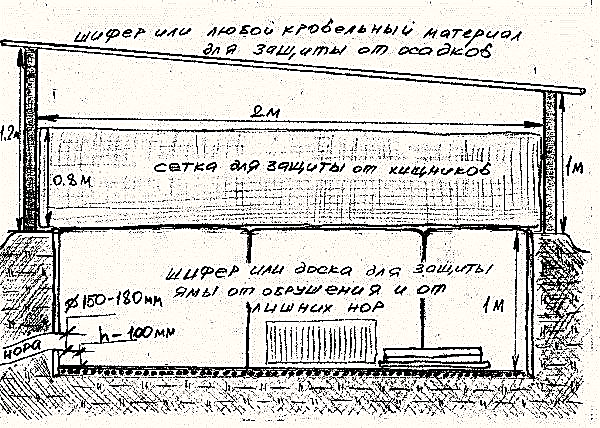 шифер или любой кровельный материал
для защиты от осадков
2м
1.2м
сетка для защиты от хищников
0.8м
1м
шифер или доска для защиты
ямы от обрушения и от
лишних нор
ø150-180мм
1м
h-100мм
нора